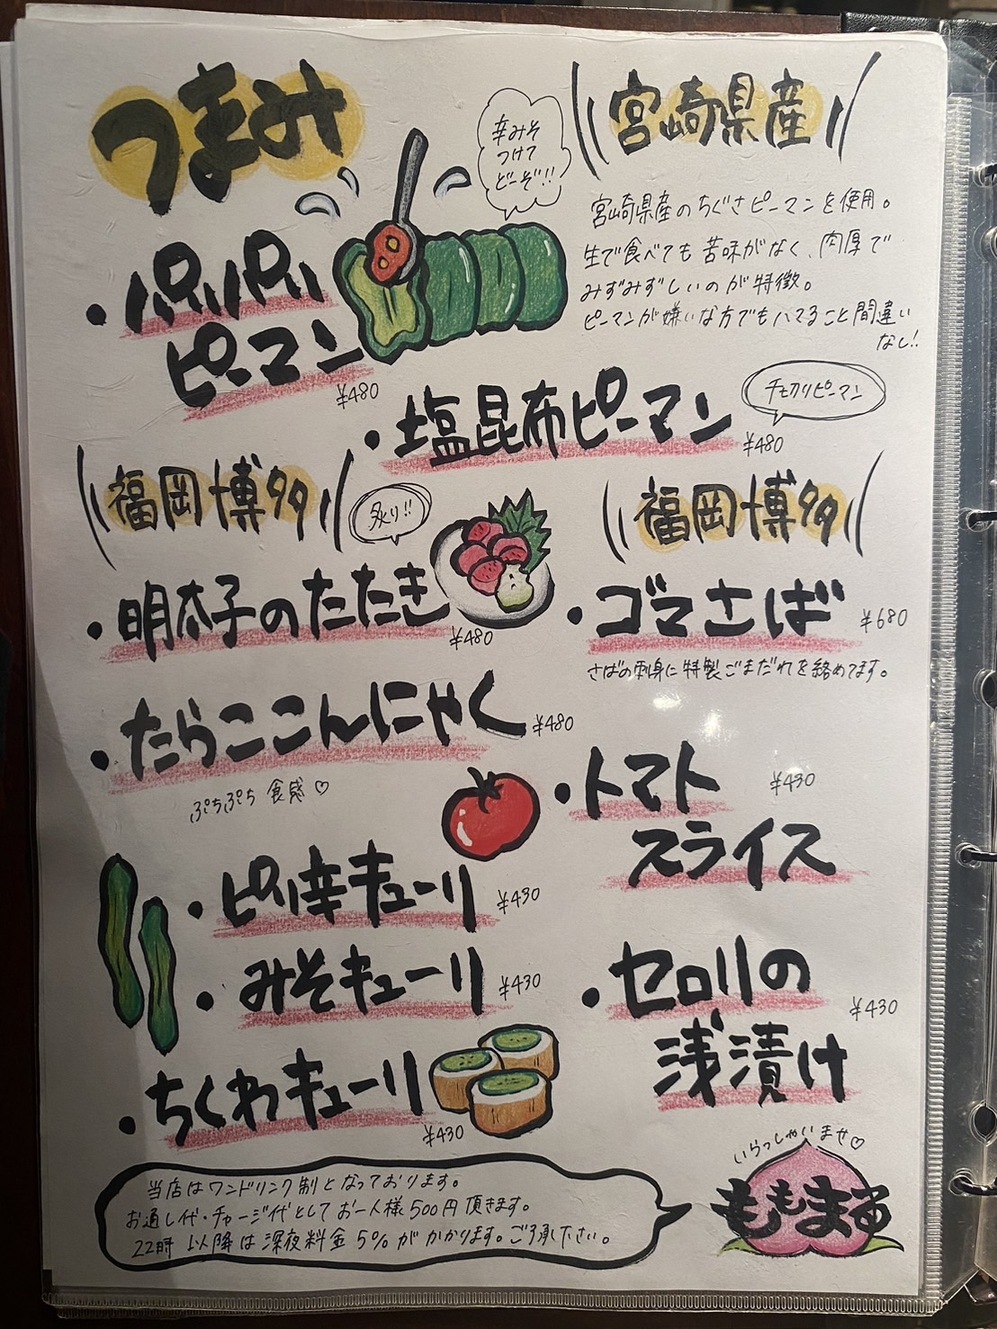 つまみ
辛みそ
つけて
どーぞ!!
宮崎県産
宮崎県産のちぐさピーマンを使用。
生で食べても苦味がなく、肉厚で
みずみずしいのが特徴。
ピーマンが嫌いな方でもハマること間違い
なし!!
・パリパリ
ピーマン
¥480
・塩昆布ピーマン
チギリピーマン
¥480
福岡博多
炙り!!
・明太子のたたき
¥480
福岡博多
・ゴマさば ¥680
さばの刺身に特製ごまだれを絡めてます。
・たらここんにゃく ¥480
ぷちぷち 食感♡
・トマト ¥430
スライス
・ピリ辛キューリ ¥430
・みそキューリ ¥430
・セロリの ¥430
浅漬け
・ちくわキューリ
¥430
当店はワンドリンク制となっております。
お通し代・チャージ代としてお一人様500円頂きます。
22時以降は深夜料金5%がかかります。ご了承ください。
いらっしゃいませ♡
ももまる